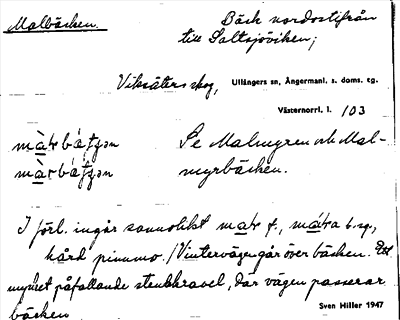 Malbäcken.
Bäck nordostifrån
till Saltsjöviken;
Viksäters skog, Ullångers sn, Ångermanl. s. doms. tg.
Västernorrl. l. 103
Se Malmyren och Mal-
myrbäcken.
I förl. ingår sannolikt f.,
hård pinnmo. / Vintervägen går över bäcken. Ett
mycket påfallande stenkravel, där vägen passerar
bäcken
Sven Hiller 1947